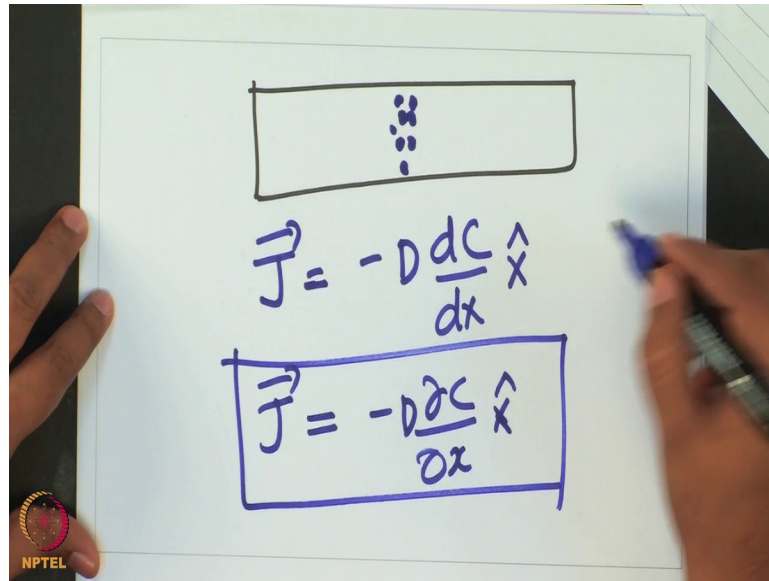 J⃗ = -D dC/dx x̂
J⃗ = -D ∂C/∂x x̂
NPTEL